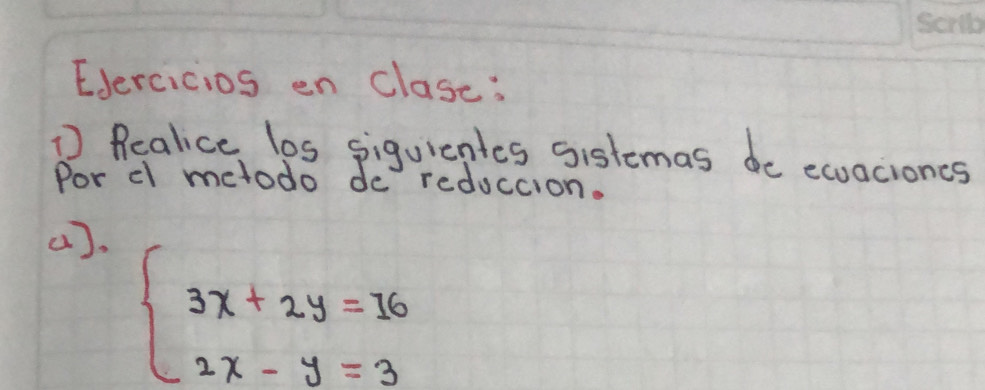 Scrib
Ejercicios en Clase:
1) Realice los siguientes sistemas de ecuaciones
Por el metodo de reduccion.
a).
3x + 2y = 16
2x - y = 3